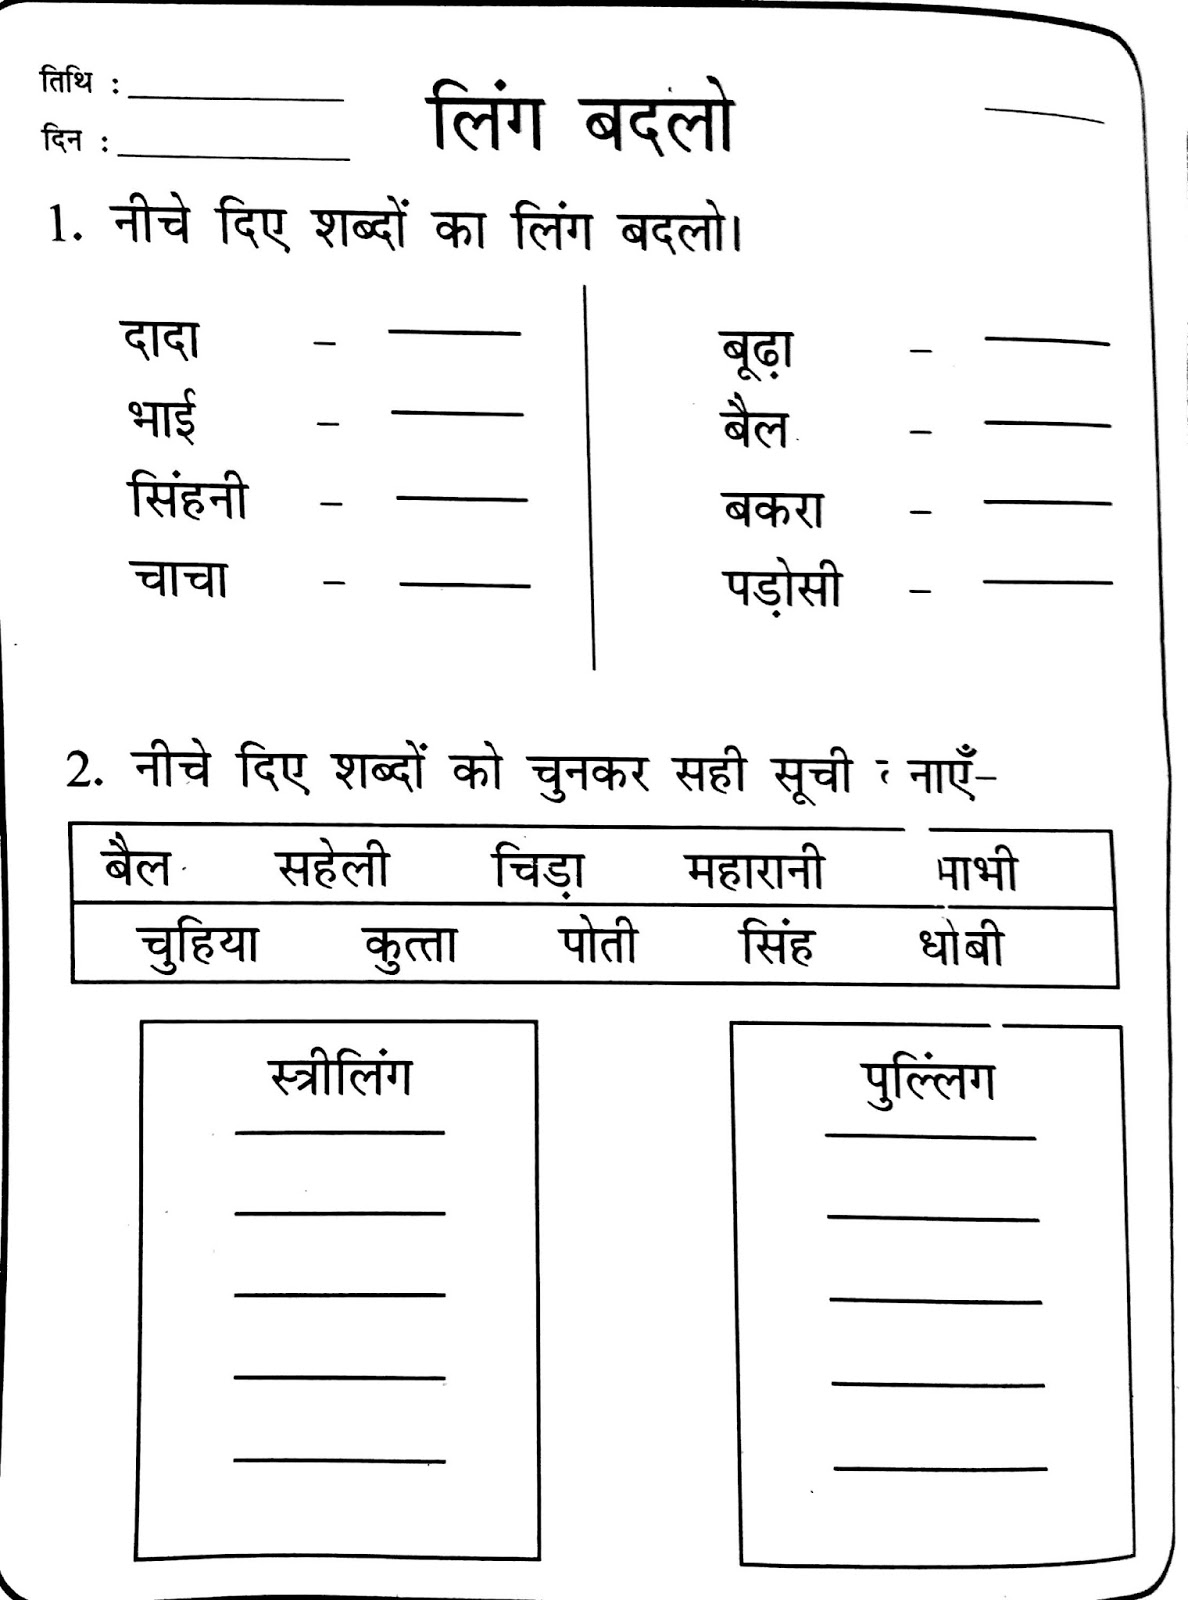 तिथि : 
लिंग बदलो
दिन : 
1. नीचे दिए शब्दों का लिंग बदलो।
दादा –
बूढ़ा –
भाई –
बैल –
सिंहनी –
बकरा –
चाचा –
पड़ोसी –
2. नीचे दिए शब्दों को चुनकर सही सूची नाएँ–
बैल सहेली चिड़ा महारानी भाभी
चुहिया कुत्ता पोती सिंह धोबी
स्त्रीलिंग
पुल्लिंग